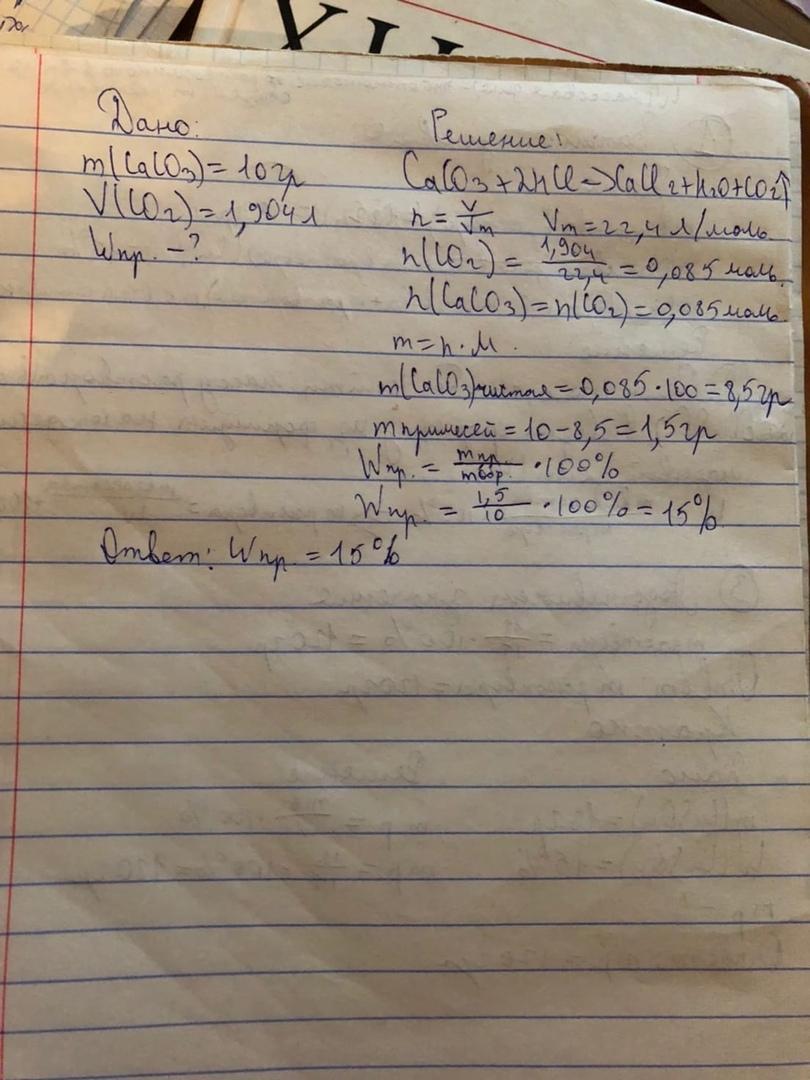 Дано:
m(CaCO3)=10гр
V(CO2)=1,904л
Wпр. -?
Решение:
CaCO3+2HCl->CaCl2+H2O+CO2↑
n=V/Vm Vm=22,4 л/моль
n(CO2)=1,904/22,4=0,085 моль.
n(CaCO3)=n(CO2)=0,085моль.
m=n·M.
m(CaCO3)чистая=0,085·100=8,5гр
mпримесей=10-8,5=1,5гр
Wпр.=mпр./mобр.·100%
Wпр.=1,5/10·100%=15%
Ответ: Wпр.=15%